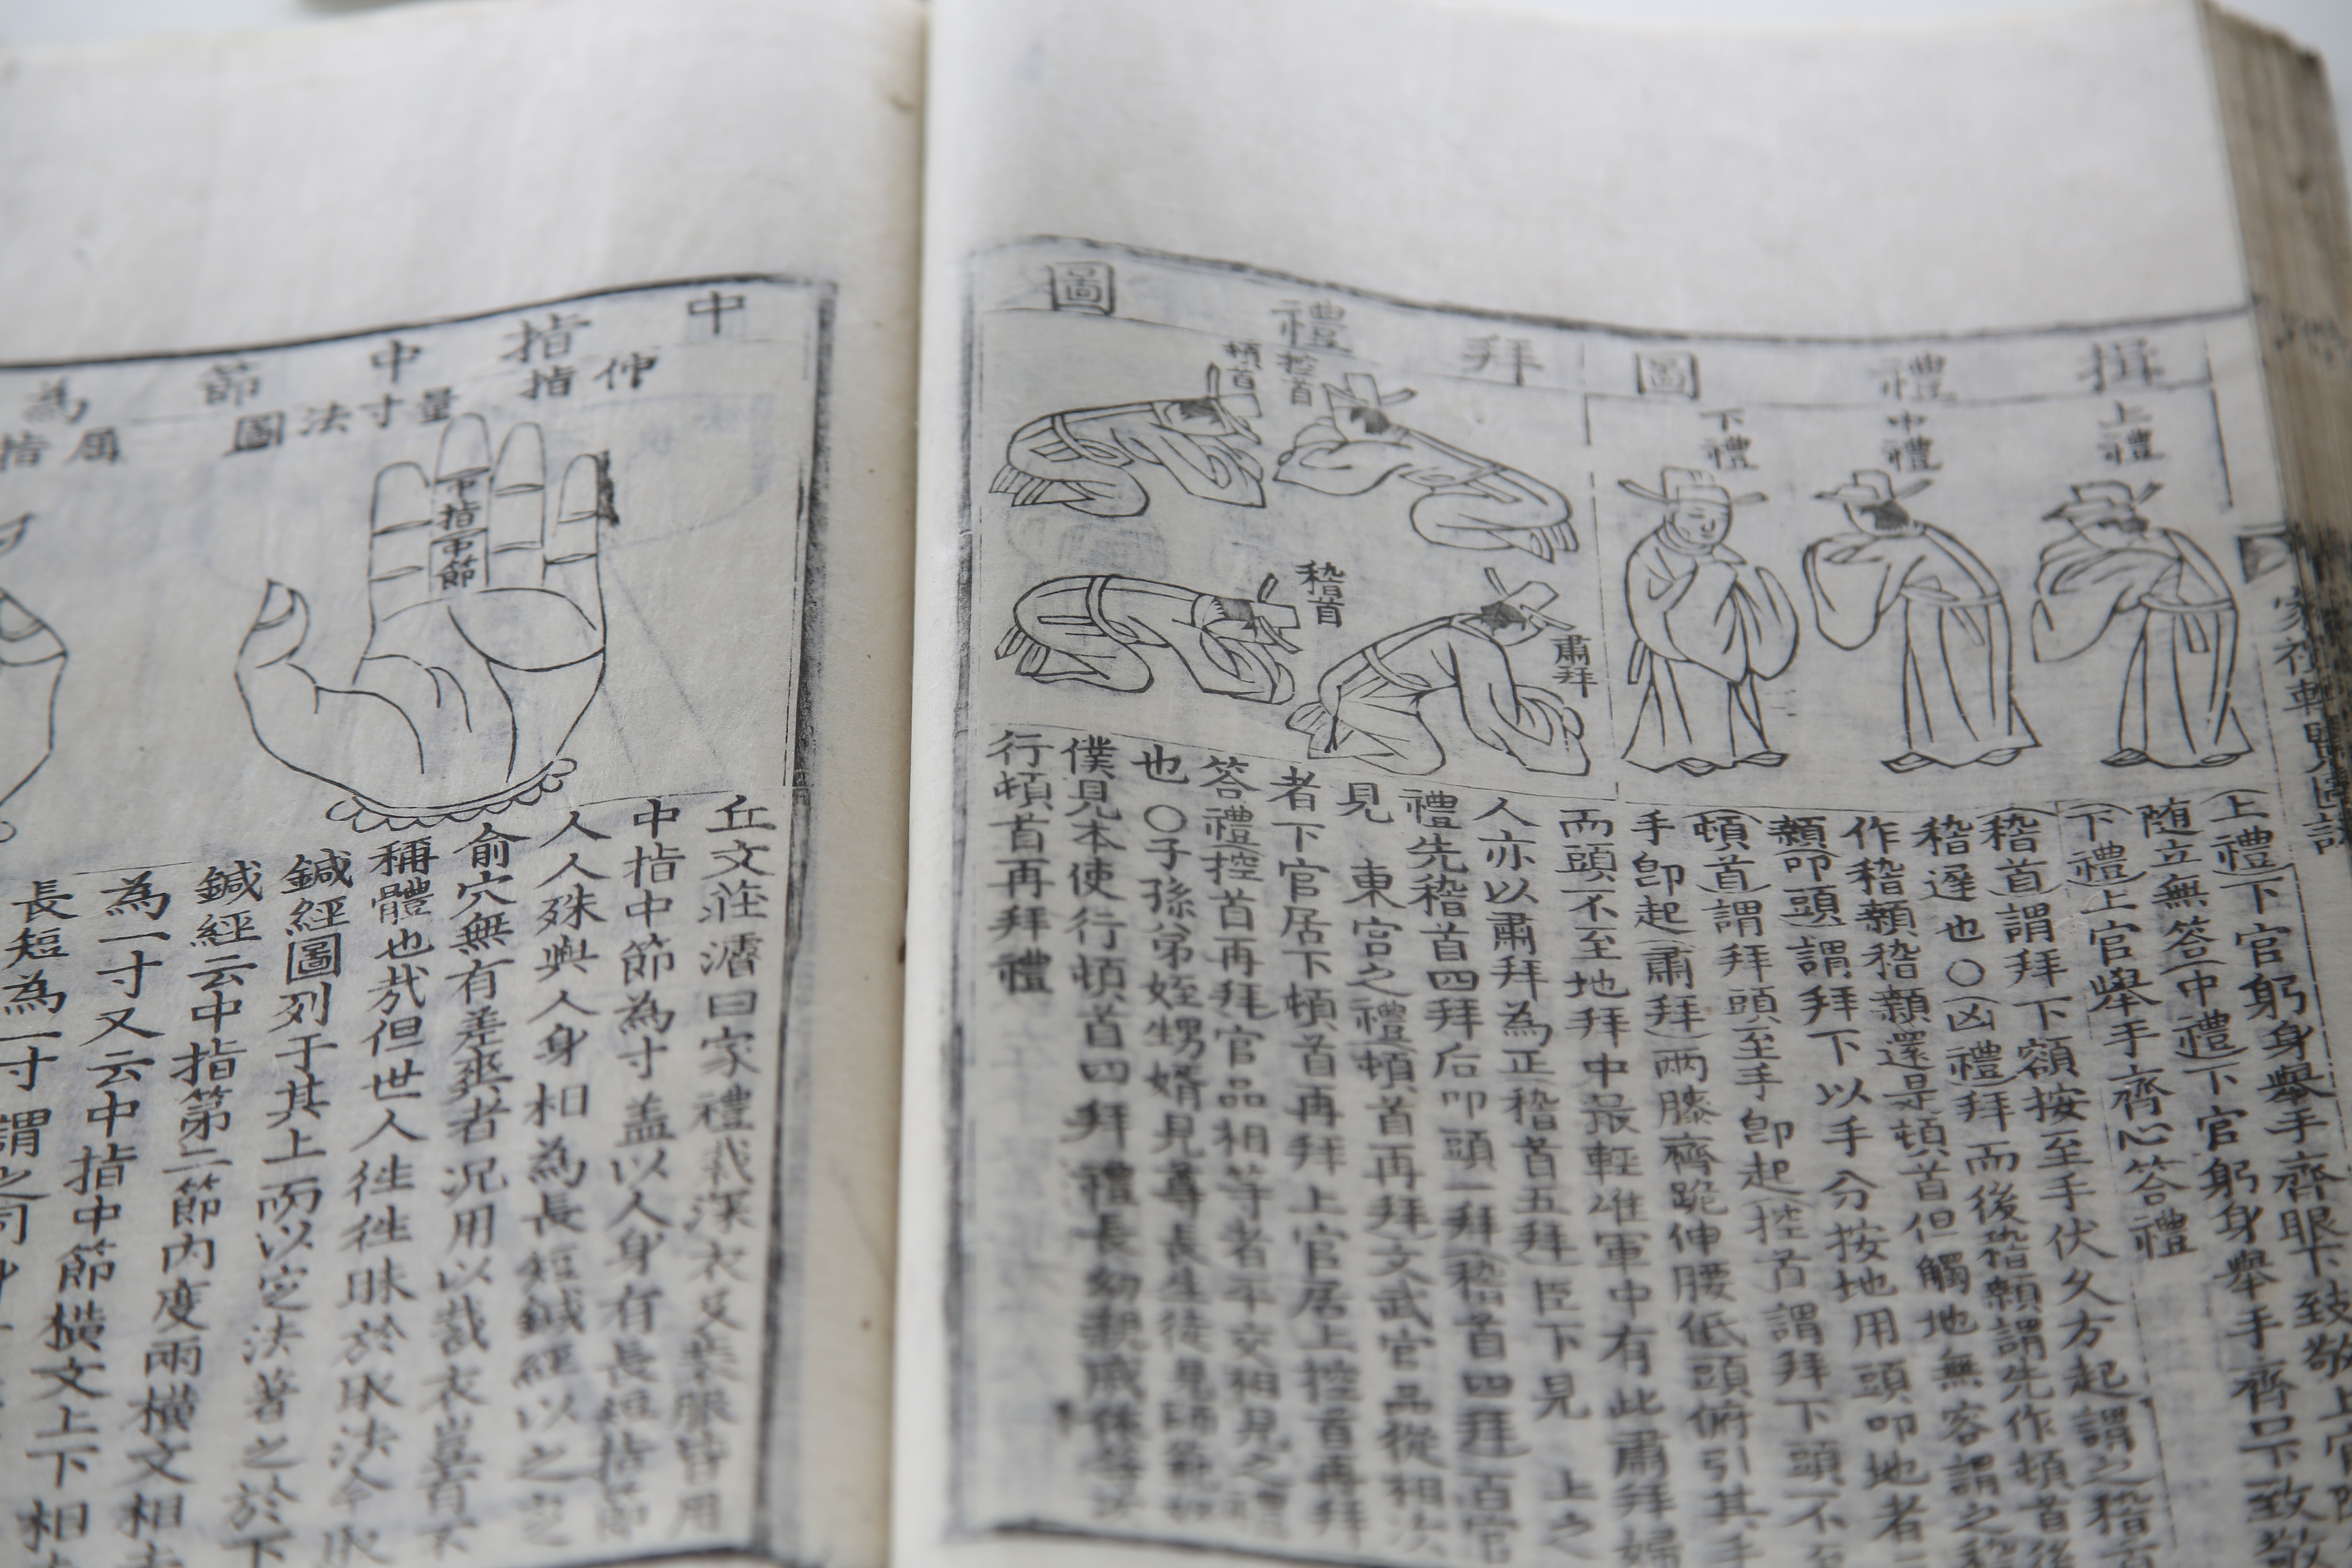 揖禮圖
上禮
中禮
下禮
拜禮圖
控首
頓首
稽首
肅拜
家禮輯覽圖說
(上禮)下官躬身舉手齊眼下致敬上官
随立無答(中禮)下官躬身舉手齊口下致敬
(下禮)上官舉手齊心答禮
(稽首)謂拜下額按至手伏久方起謂之稽
稽遲也○(凶禮)拜而後稽顙謂先作頓首後
作稽顙稽顙還是頓首但觸地無容謂之稽
顙叩頭謂拜下以手分按地用頭叩地者
(頓首)謂拜頭至手卽起(控首)謂拜下頭不至
手卽起(肅拜)两膝齊跪伸腰低頭俯引其手
而頭不至地拜中最輕准軍中有此肅拜婦
人亦以肅拜為正(稽首五拜)臣下見 上之
禮先稽首四拜后叩頭一拜(稽首四拜)百官
見 東宮之禮(頓首再拜)文武官品從相次
者下官居下頓首再拜上官居上控首再拜
答禮(控首再拜)官品相等者平交相見之禮
也○子孫弟姪甥婿見尊長生徒見師範
僕見本使行頓首四拜禮長幼親戚
行頓首再拜禮
中指中節為
伸指
量寸法圖
屈指
中指中節
丘文莊濬曰家禮裁深衣及䘮服皆用
中指中節為寸盖以人身有長短指節
人人殊與人身相為長短鍼經以之定
俞穴無有差爽者况用以裁衣豈有不
稱體也㢤但世人徃徃昧於取法今取
鍼經圖列于其上而以定法著之於下
鍼經云中指第二節内度兩橫文相去
為一寸又云中指中節橫文上下相去
長短為一寸謂之同身寸